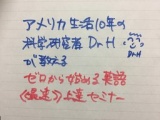 アメリカ生活10年の
科学研究者 Dr.H
が教える
Dr.H
ゼロから始める英語
《最速》上達セミナー